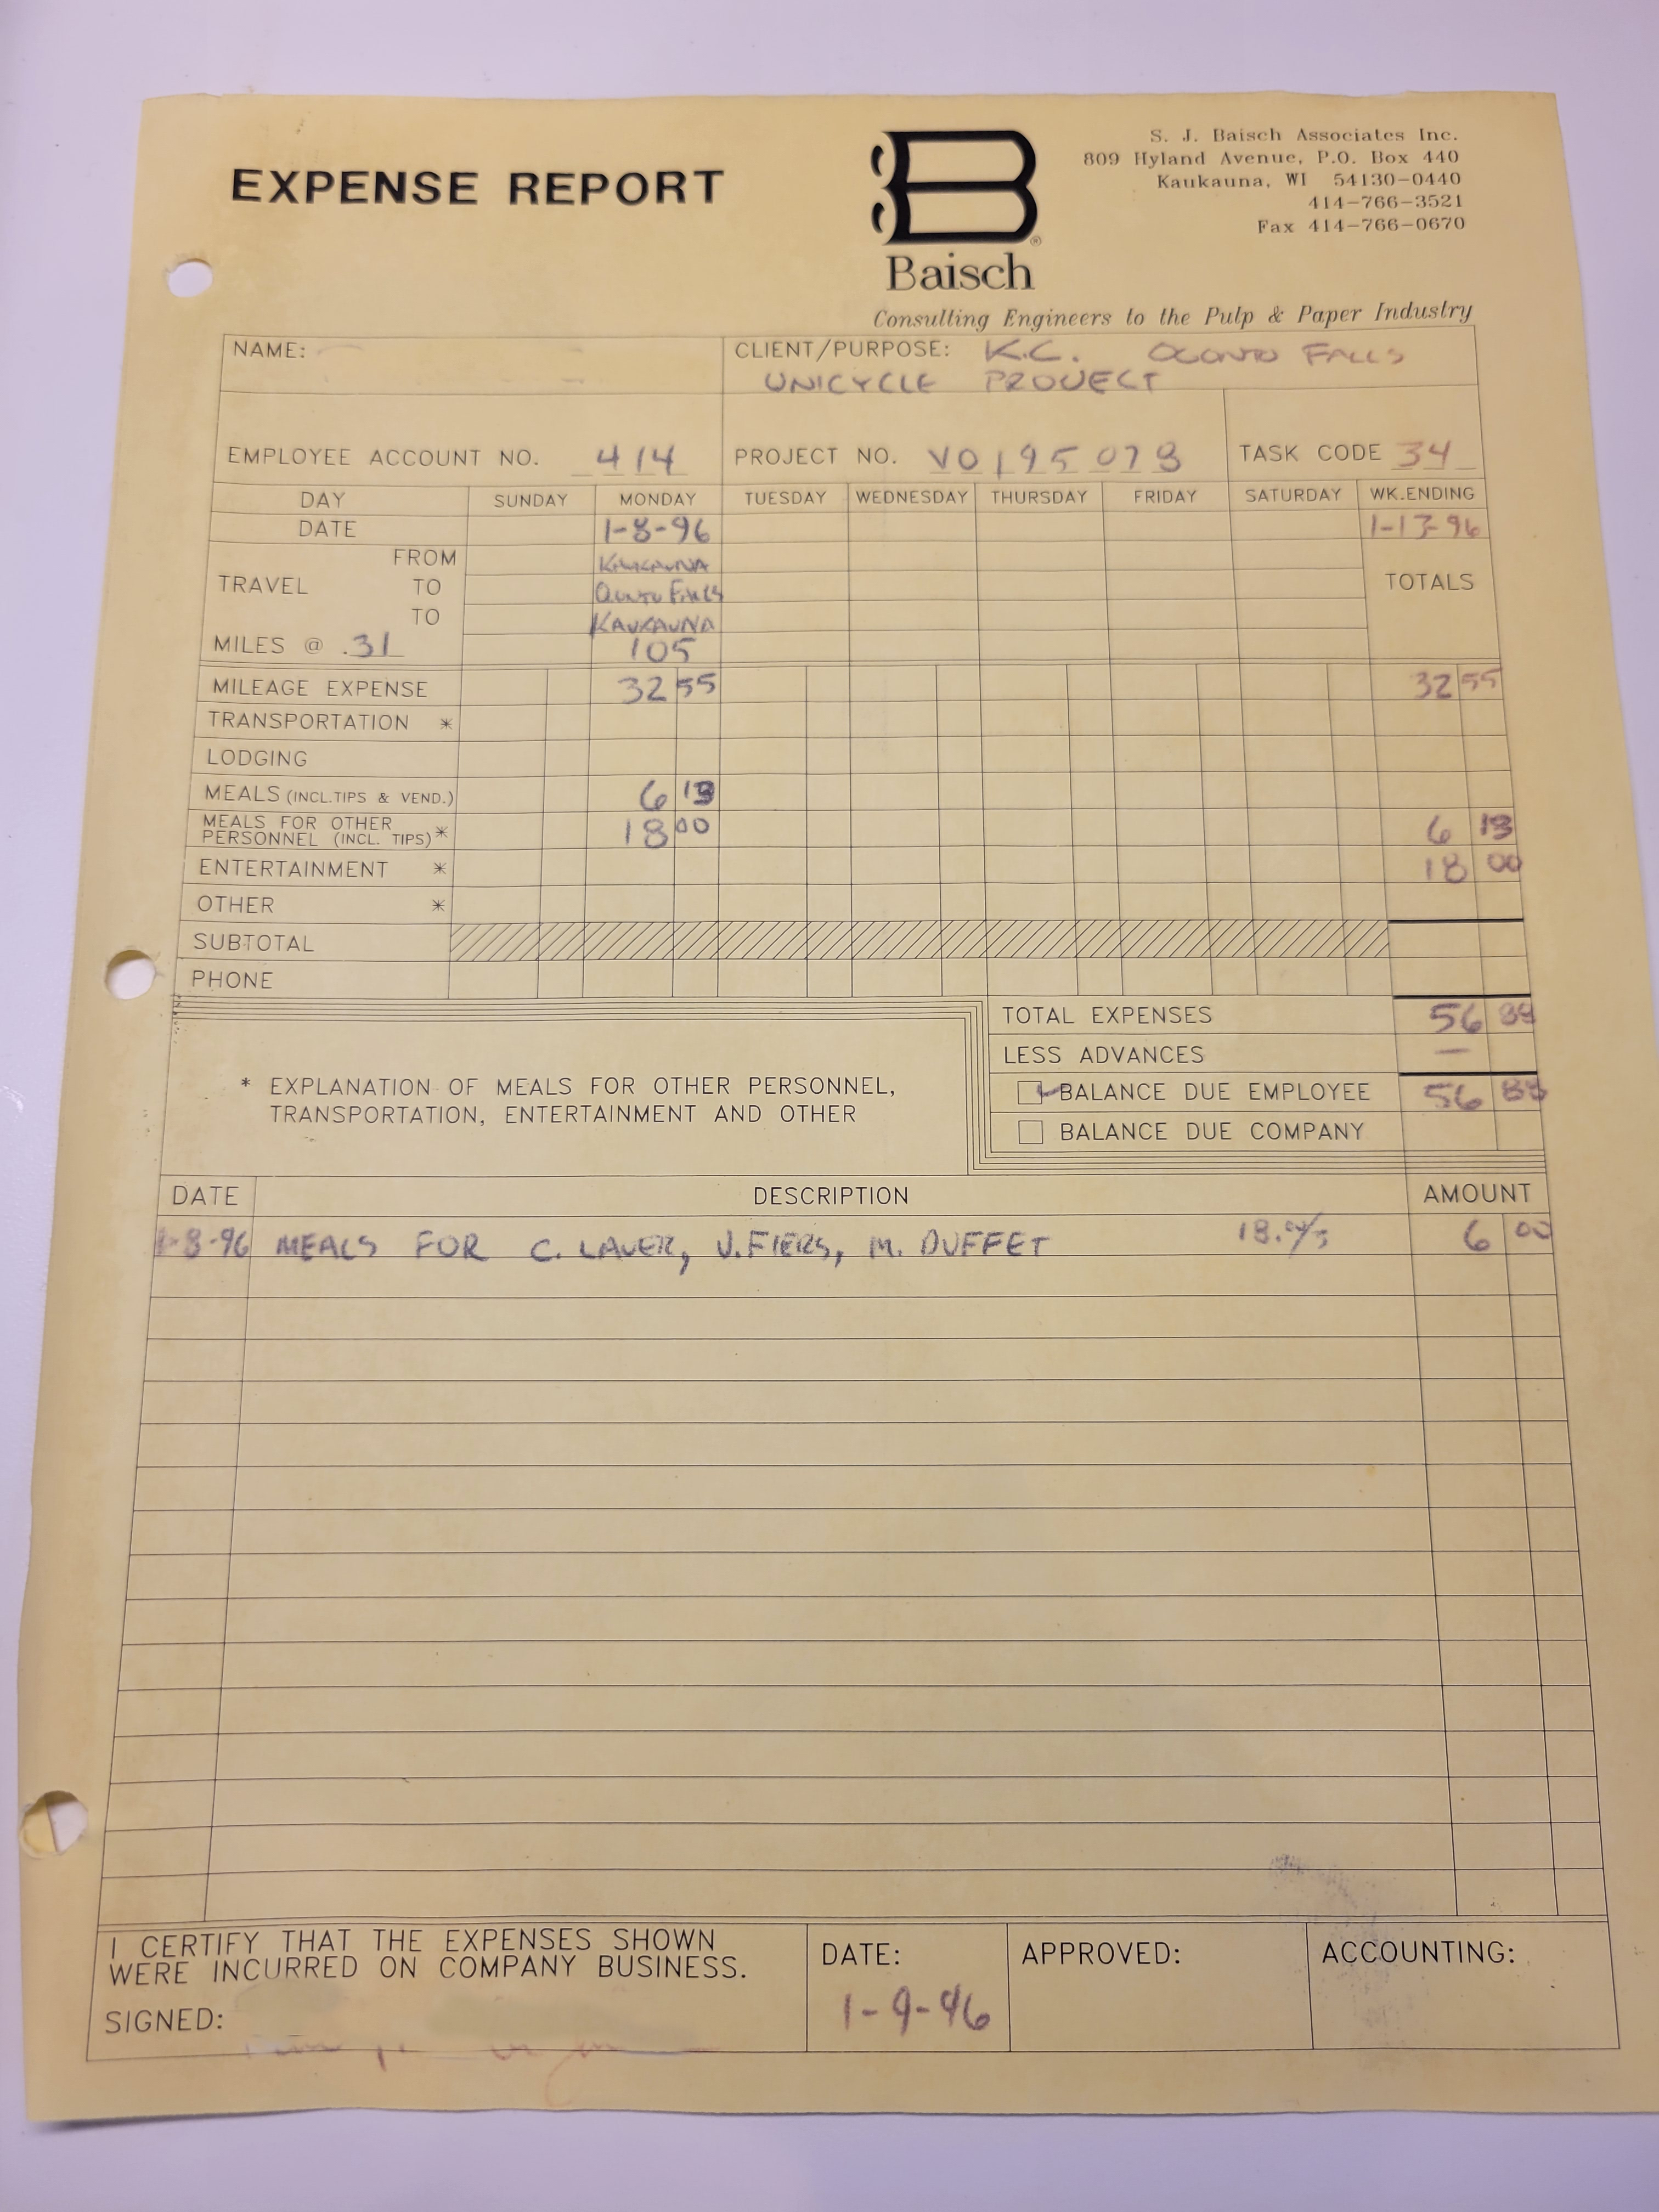 EXPENSE REPORT
S. J. Baisch Associates Inc.
809 Hyland Avenue, P.O. Box 440
Kaukauna, WI 54130-0440
414-766-3521
Fax 414-766-0670
B®
Baisch
Consulting Engineers to the Pulp & Paper Industry
NAME:
CLIENT/PURPOSE: K.C. OCONTO FALLS
UNICYCLE PROJECT
EMPLOYEE ACCOUNT NO. 414 PROJECT NO. V0195078 TASK CODE 34
DAY SUNDAY MONDAY TUESDAY WEDNESDAY THURSDAY FRIDAY SATURDAY WK.ENDING
DATE 1-8-96 1-13-96
FROM KAUKAUNA
TRAVEL TO OCONTO FALLS TOTALS
TO KAUKAUNA
MILES @ .31 105
MILEAGE EXPENSE 32 55 32 55
TRANSPORTATION *
LODGING
MEALS (INCL.TIPS & VEND.) 6
MEALS FOR OTHER
PERSONNEL (INCL. TIPS)* 18 00 6
ENTERTAINMENT * 18 00
OTHER *
SUBTOTAL
PHONE
TOTAL EXPENSES 56
LESS ADVANCES —
BALANCE DUE EMPLOYEE 56
BALANCE DUE COMPANY
* EXPLANATION OF MEALS FOR OTHER PERSONNEL,
TRANSPORTATION, ENTERTAINMENT AND OTHER
DATE DESCRIPTION AMOUNT
1-8-96 MEALS FOR C. LAUER, J. FIERS, M. DUFFET 6 00
I CERTIFY THAT THE EXPENSES SHOWN
WERE INCURRED ON COMPANY BUSINESS.
SIGNED:
DATE:
1-9-96
APPROVED:
ACCOUNTING: